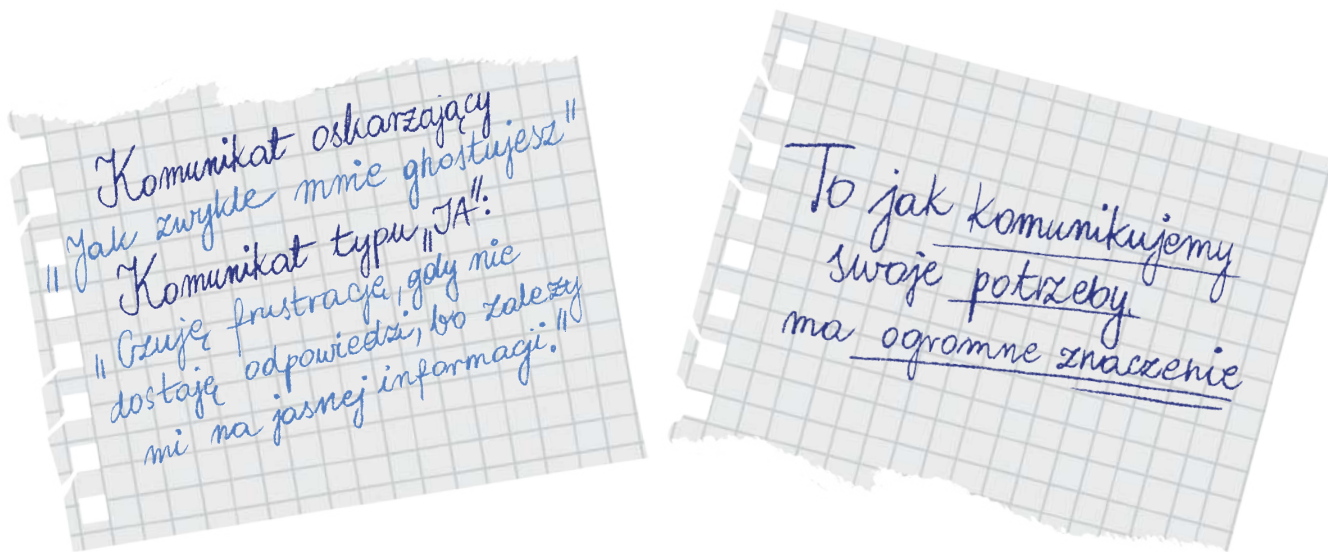 Komunikat oskarżający
"Jak zwykle mnie ghostujesz"
Komunikat typu „JA":
"Czuję frustrację, gdy nie
dostaję odpowiedzi, bo zależy
mi na jasnej informacji."
To jak komunikujemy
swoje potrzeby
ma ogromne znaczenie